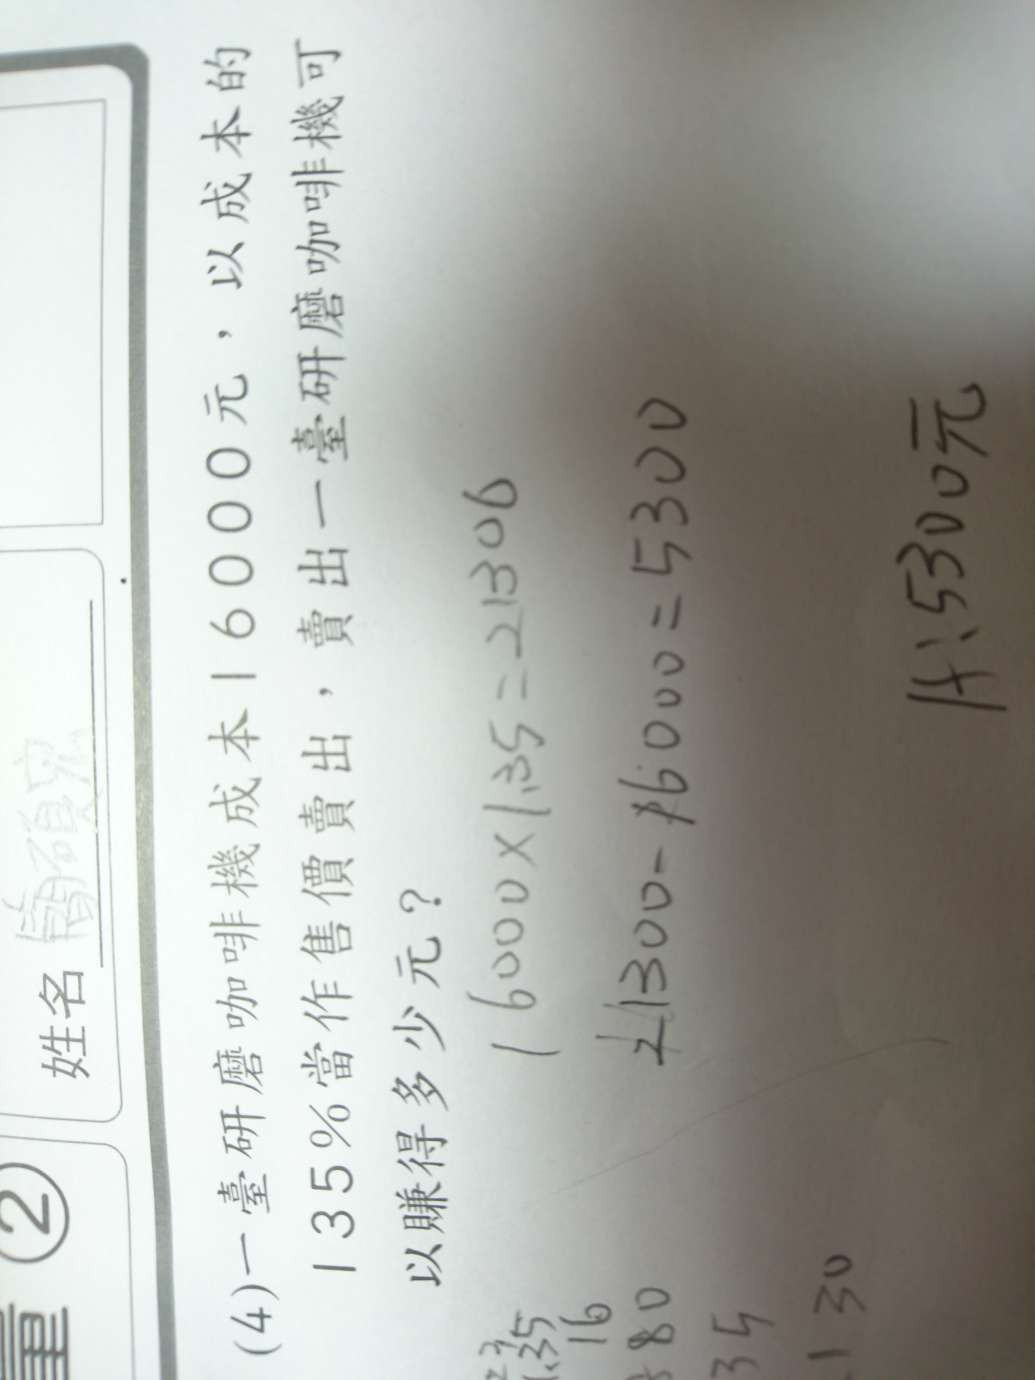 ②
姓名
(4)一臺研磨咖啡機成本16000元，以成本的
135%當作售價賣出，賣出一臺研磨咖啡機可
以賺得多少元？
16000×1.35=21300
21300-16000=5300
A:5300元
1.35
16
80
35
130